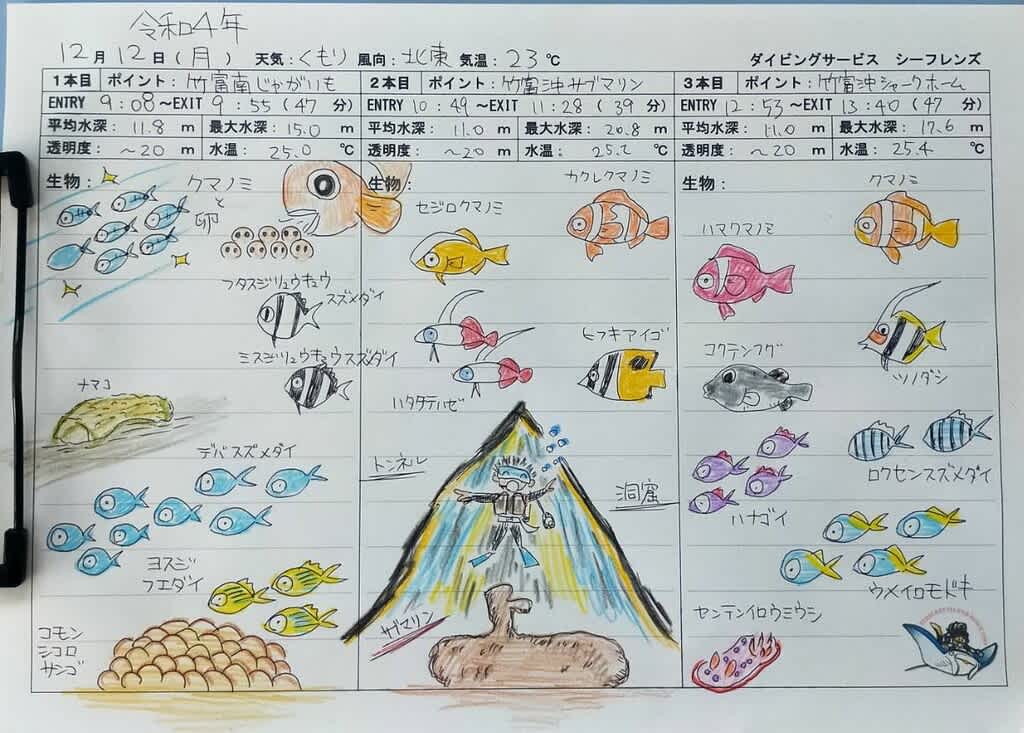 令和4年
12月12日(月) 天気:くもり 風向:北東 気温:23℃ ダイビングサービス シーフレンズ
1本目 ポイント:竹富南じゃがいも
ENTRY 9:08~EXIT 9:55(47分)
平均水深:11.8m 最大水深:15.0m
透明度:~20m 水温:25.0℃
生物:
クマノミ
と
卵
フタスジリュウキュウ
スズメダイ
ミスジリュウキュウスズメダイ
ナマコ
デバスズメダイ
ヨスジ
フエダイ
コモン
シコロ
サンゴ
2本目 ポイント:竹富沖サブマリン
ENTRY 10:49~EXIT 11:28(39分)
平均水深:11.0m 最大水深:20.8m
透明度:~20m 水温:25.2℃
生物:
カクレクマノミ
セジロクマノミ
ヒフキアイゴ
ハタタテハゼ
トンネル
洞窟
サブマリン
3本目 ポイント:竹富沖シャークホーム
ENTRY 12:53~EXIT 13:40(47分)
平均水深:11.0m 最大水深:17.6m
透明度:~20m 水温:25.4℃
生物:
クマノミ
ハマクマノミ
コクテンフグ
ツノダシ
ロクセンスズメダイ
ハナゴイ
ウメイロモドキ
センテンイロウミウシ